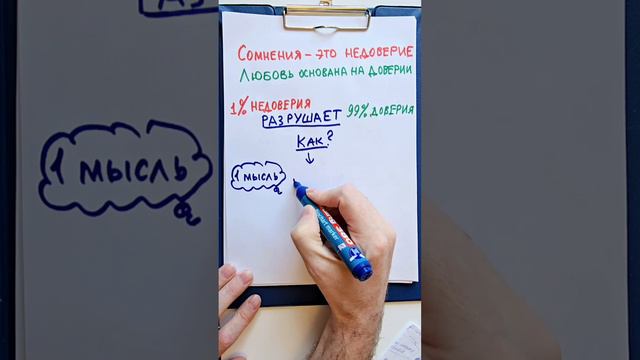 Сомнения – это недоверие
Любовь основана на доверии
1% недоверия
разрушает
99% доверия
как?
1 мысль